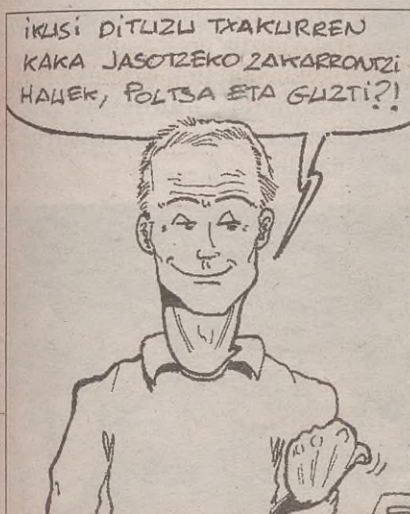 iKUSi DiTUZU TXAKURREN
KAKA JASOTZEKO ZAKARRONTZi
HAUEK, POLTSA ETA GUZTi?!